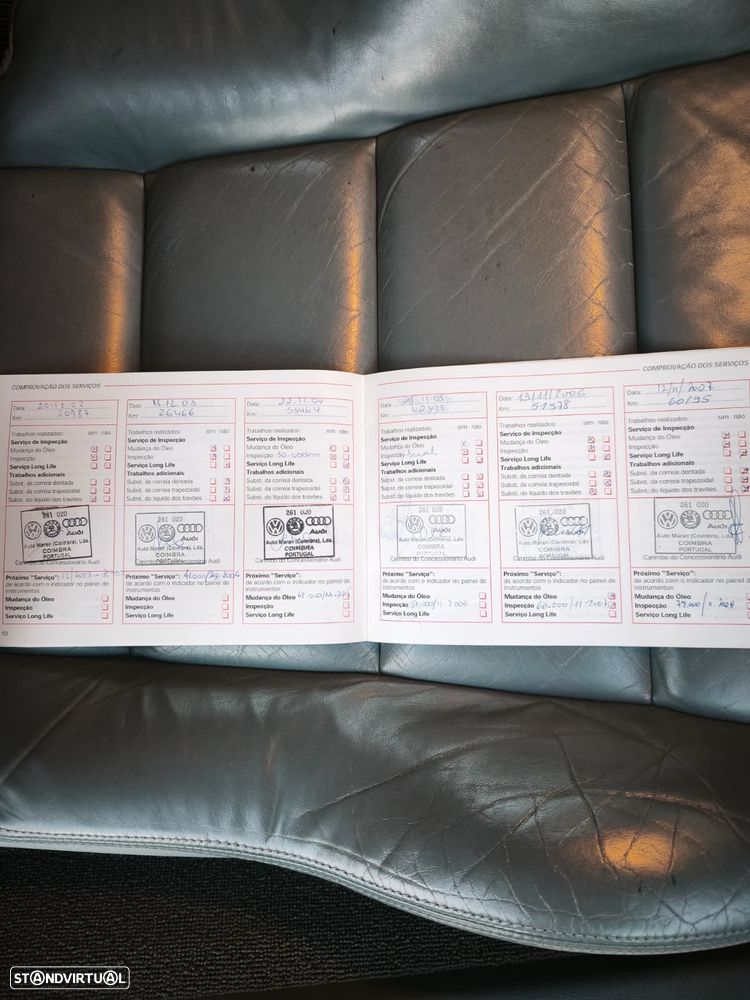 COMPROVAÇÃO DOS SERVIÇOS
Data: 20.12.02
Km: 20987
Trabalhos realizados: sim não
Serviço de Inspecção
Mudança do Óleo
Inspecção
Serviço Long Life
Trabalhos adicionais
Subst. da correia dentada
Subst. da correia trapezoidal
Subst. do líquido dos travões
261 020
Audi
Auto Maran (Coimbra), Lda.
COIMBRA
PORTUGAL
Carimbo do Concessionário Audi
Próximo "Serviço":
de acordo com o indicador no painel de
instrumentos
Mudança do Óleo
Inspecção
Serviço Long Life
10
Data: 15.12.03
Km: 26466
Trabalhos realizados: sim não
Serviço de Inspecção
Mudança do Óleo
Inspecção
Serviço Long Life
Trabalhos adicionais
Subst. da correia dentada
Subst. da correia trapezoidal
Subst. do líquido dos travões
261 020
Audi
Auto Maran (Coimbra), Lda.
COIMBRA
PORTUGAL
Carimbo do Concessionário Audi
Próximo "Serviço": 41000/Dez 2004
de acordo com o indicador no painel de
instrumentos
Mudança do Óleo
Inspecção
Serviço Long Life
Data: 22.11.04
Km: 33464
Trabalhos realizados: sim não
Serviço de Inspecção
Mudança do Óleo
Inspecção 30.000km
Serviço Long Life
Trabalhos adicionais
Subst. da correia dentada
Subst. da correia trapezoidal
Subst. do líquido dos travões
261 020
Audi
Auto Maran (Coimbra), Lda.
COIMBRA
PORTUGAL
Carimbo do Concessionário Audi
Próximo "Serviço":
de acordo com o indicador no painel de
instrumentos
Mudança do Óleo
Inspecção
Serviço Long Life
COMPROVAÇÃO DOS SERVIÇOS
Data:
Km: 42398
Trabalhos realizados: sim não
Serviço de Inspecção
Mudança do Óleo
Inspecção
Serviço Long Life
Trabalhos adicionais
Subst. da correia dentada
Subst. da correia trapezoidal
Subst. do líquido dos travões
261 020
Audi
Auto Maran (Coimbra), Lda.
COIMBRA
PORTUGAL
Carimbo do Concessionário Audi
Próximo "Serviço":
de acordo com o indicador no painel de
instrumentos
Mudança do Óleo
Inspecção 57.000/11.2006
Serviço Long Life
Data: 13/11/2006
Km: 51578
Trabalhos realizados: sim não
Serviço de Inspecção
Mudança do Óleo
Inspecção
Serviço Long Life
Trabalhos adicionais
Subst. da correia dentada
Subst. da correia trapezoidal
Subst. do líquido dos travões
261 020
COIMBRA
PORTUGAL
Carimbo do Concessionário Audi
Próximo "Serviço":
de acordo com o indicador no painel de
instrumentos
Mudança do Óleo
Inspecção 66.000/11.2007
Serviço Long Life
Data: 12/11/2007
Km: 60195
Trabalhos realizados: sim não
Serviço de Inspecção
Mudança do Óleo
Inspecção
Serviço Long Life
Trabalhos adicionais
Subst. da correia dentada
Subst. da correia trapezoidal
Subst. do líquido dos travões
261 020
Audi
Auto Maran (Coimbra), Lda.
COIMBRA
PORTUGAL
Carimbo do Concessionário Audi
Próximo "Serviço":
de acordo com o indicador no painel de
instrumentos
Mudança do Óleo
Inspecção
Serviço Long Life
STANDVIRTUAL